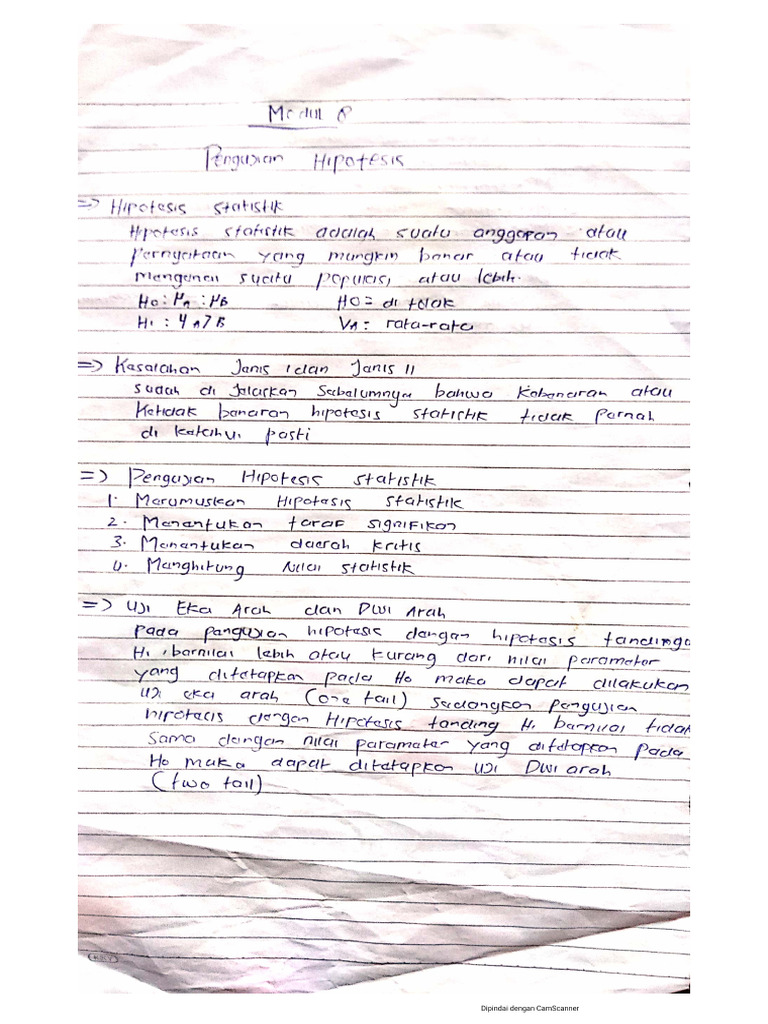 Modul 8
Pengujian Hipotesis
=> Hipotesis statistik
Hipotesis statistik adalah suatu anggapan atau
pernyataan yang mungkin benar atau tidak
mengenai suatu populasi atau lebih.
H0 : μA : μB H0 = di tolak
H1 : 4 A 7 B VA = rata-rata
=> Kesalahan Jenis I dan Jenis II
sudah di jelaskan sebelumnya bahwa kebenaran atau
ketidak benaran hipotesis statistik tidak pernah
di ketahui pasti
=> Pengujian Hipotesis statistik
1. Merumuskan Hipotesis statistik
2. Menentukan taraf signifikan
3. Menentukan daerah kritis
4. Menghitung Nilai statistik
=> Uji Eka Arah dan Dwi Arah
pada pengujian hipotesis dengan hipotesis tandinga
H1, bernilai lebih atau kurang dari nilai parameter
yang ditetapkan pada H0 maka dapat dilakukan
uji eka arah (one tail) sedangkan pengujian
hipotesis dengan Hipotesis tanding H1 bernilai tidak
sama dengan nilai parameter yang ditetapkan pada
H0 maka dapat ditetapkan uji Dwi arah
(two tail)
Dipindai dengan CamScanner